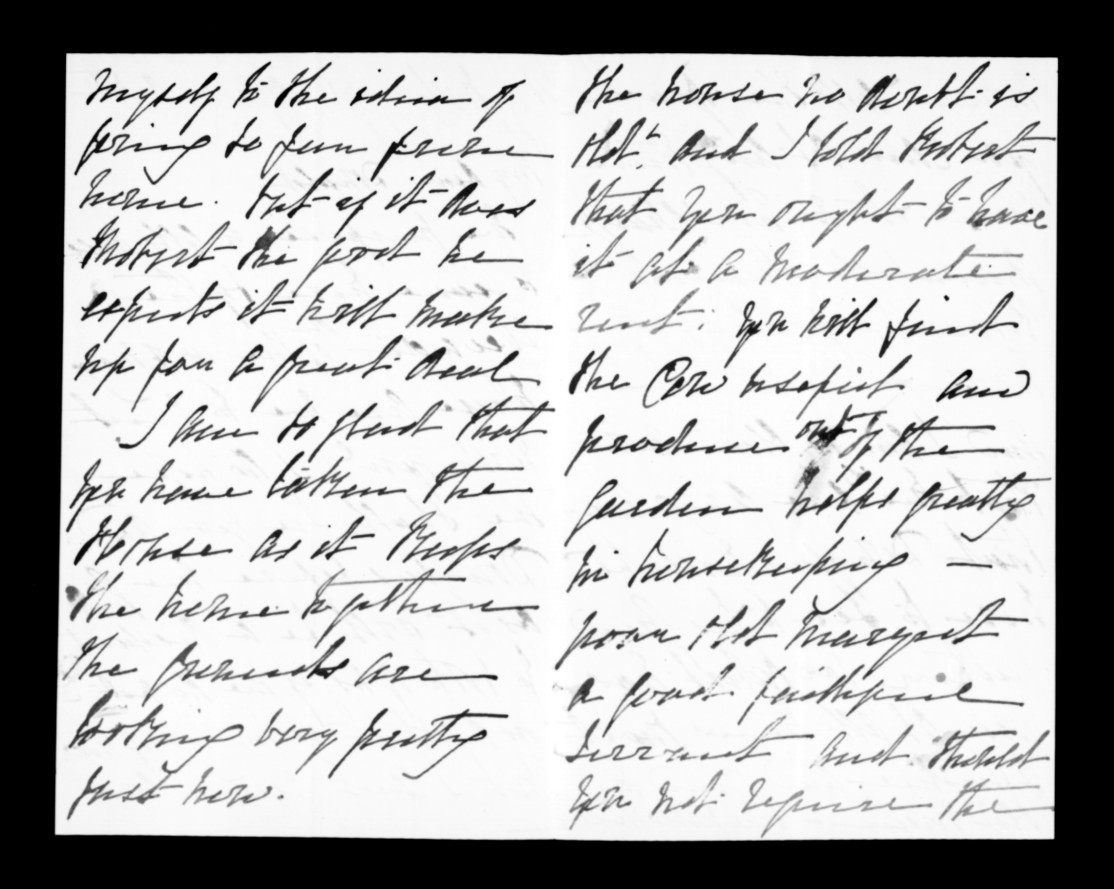 myself to the idea of
going so far from
home. but if it does
Robert the good he
expects it will make
up for a great deal
I am so glad that
you have taken the
House as it keeps
the home together
the grounds are
looking very pretty
just now.
the house no doubt is
old, and I told Robert
that you ought to have
it at a moderate
rent: you will find
the Cow useful and
produce out of the
garden helps greatly
in housekeeping —
poor old Margret
a good faithful
servant and should
you not require the